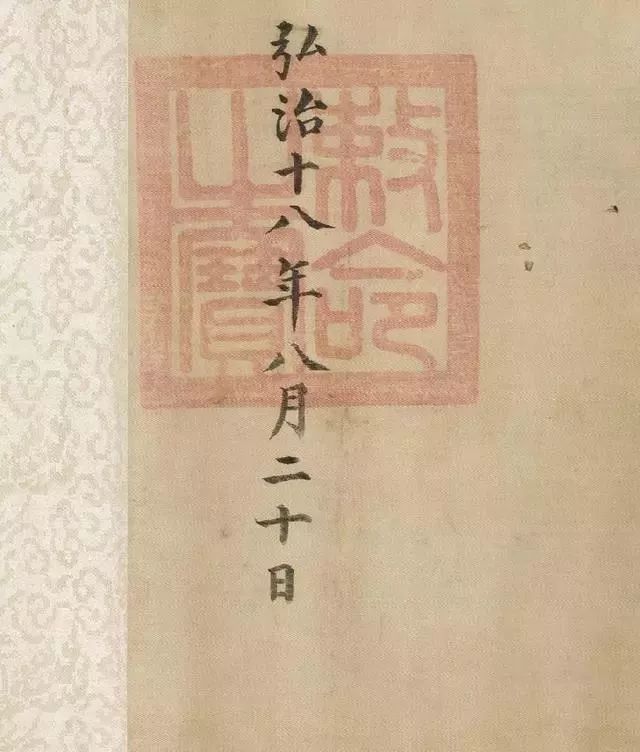 弘治十八年八月二十日
敕命
之寶